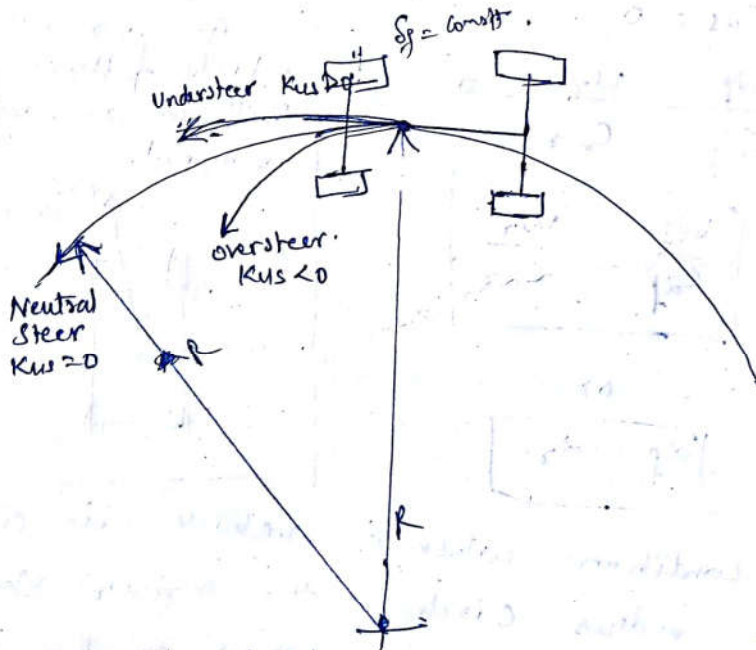 δf = const.
Understeer Kus>0
oversteer.
Kus <0
Neutral
Steer
Kus=0
R
R
condition